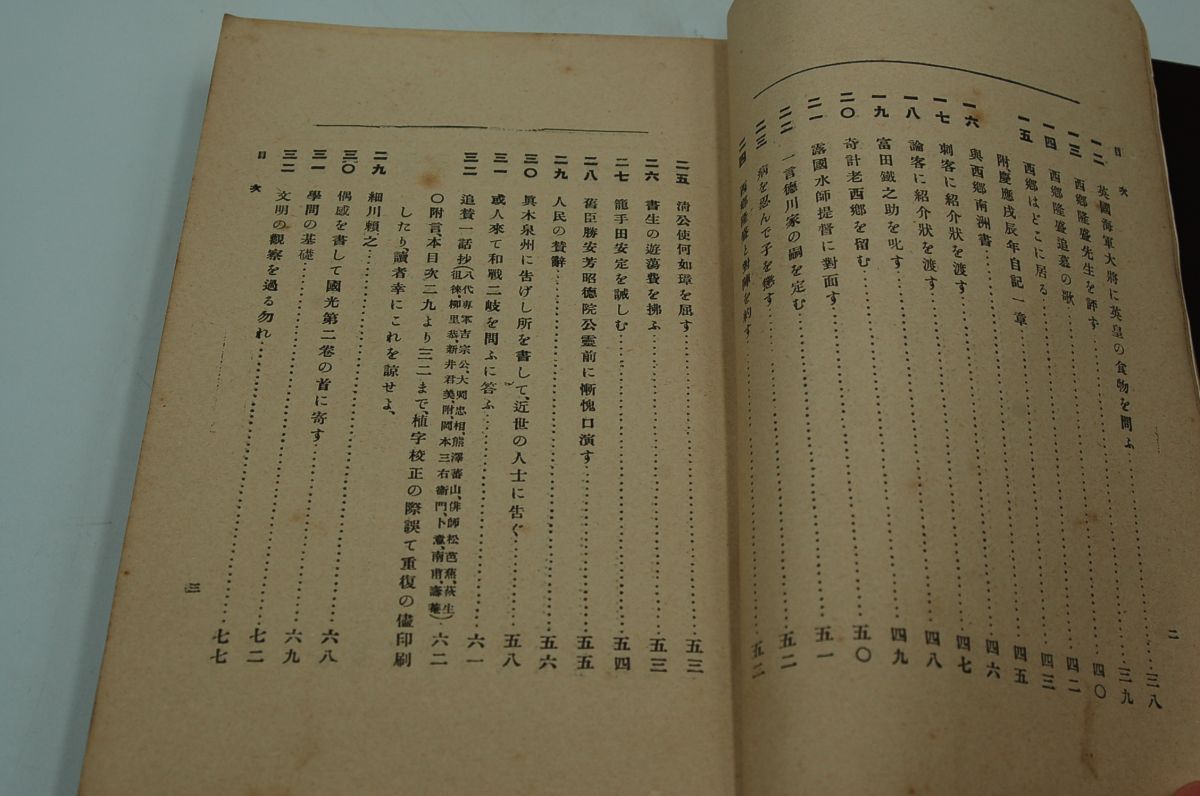 目次
一二 英國海軍大將に英皇の食物を問ふ……三八
一三 西郷隆盛先生を評す……三九
一四 西郷隆盛追慕の歌……四〇
一五 西郷はどこに居る……四二
附慶應戊辰年自記一章……四三
一六 與西郷南洲書……四五
一七 刺客に紹介狀を渡す……四六
一八 論客に紹介狀を渡す……四七
一九 富田鐵之助を叱す……四八
二〇 奇計老西郷を留む……四九
二一 露國水師提督に對面す……五〇
二二 一言德川家の嗣を定む……五一
二三 病を忍んで子を懲す……五二
二四 西郷隆盛と對陣を約す……五二
二
二五 淸公使何如璋を屈す……五三
二六 書生の遊蕩費を拂ふ……五三
二七 籠手田安定を誡しむ……五四
二八 舊臣勝安芳昭德院公靈前に漸愧口演す……五五
二九 人民の賛辭……五六
三〇 眞木泉州に告げし所を書して、近世の人士に告ぐ……五八
三一 或人來て和戰二岐を問ふに答ふ……六一
三二 追賛一話抄(八代將軍吉宗公、大岡忠相、熊澤蕃山、俳師松芭蕉、荻生徂徠、柳里恭、新井君美、附、岡本三右衞門、卜意、南甫、壽菴)六二
〇附言、本目次二九より三二まで、植字校正の際誤て重復の儘印刷
したり、讀者幸にこれを諒せよ、
二九 細川頼之……六八
三〇 偶感を書して國光第二卷の首に寄す……六九
三一 學問の基礎……七二
三二 文明の觀察を過る勿れ……七七
目次
三